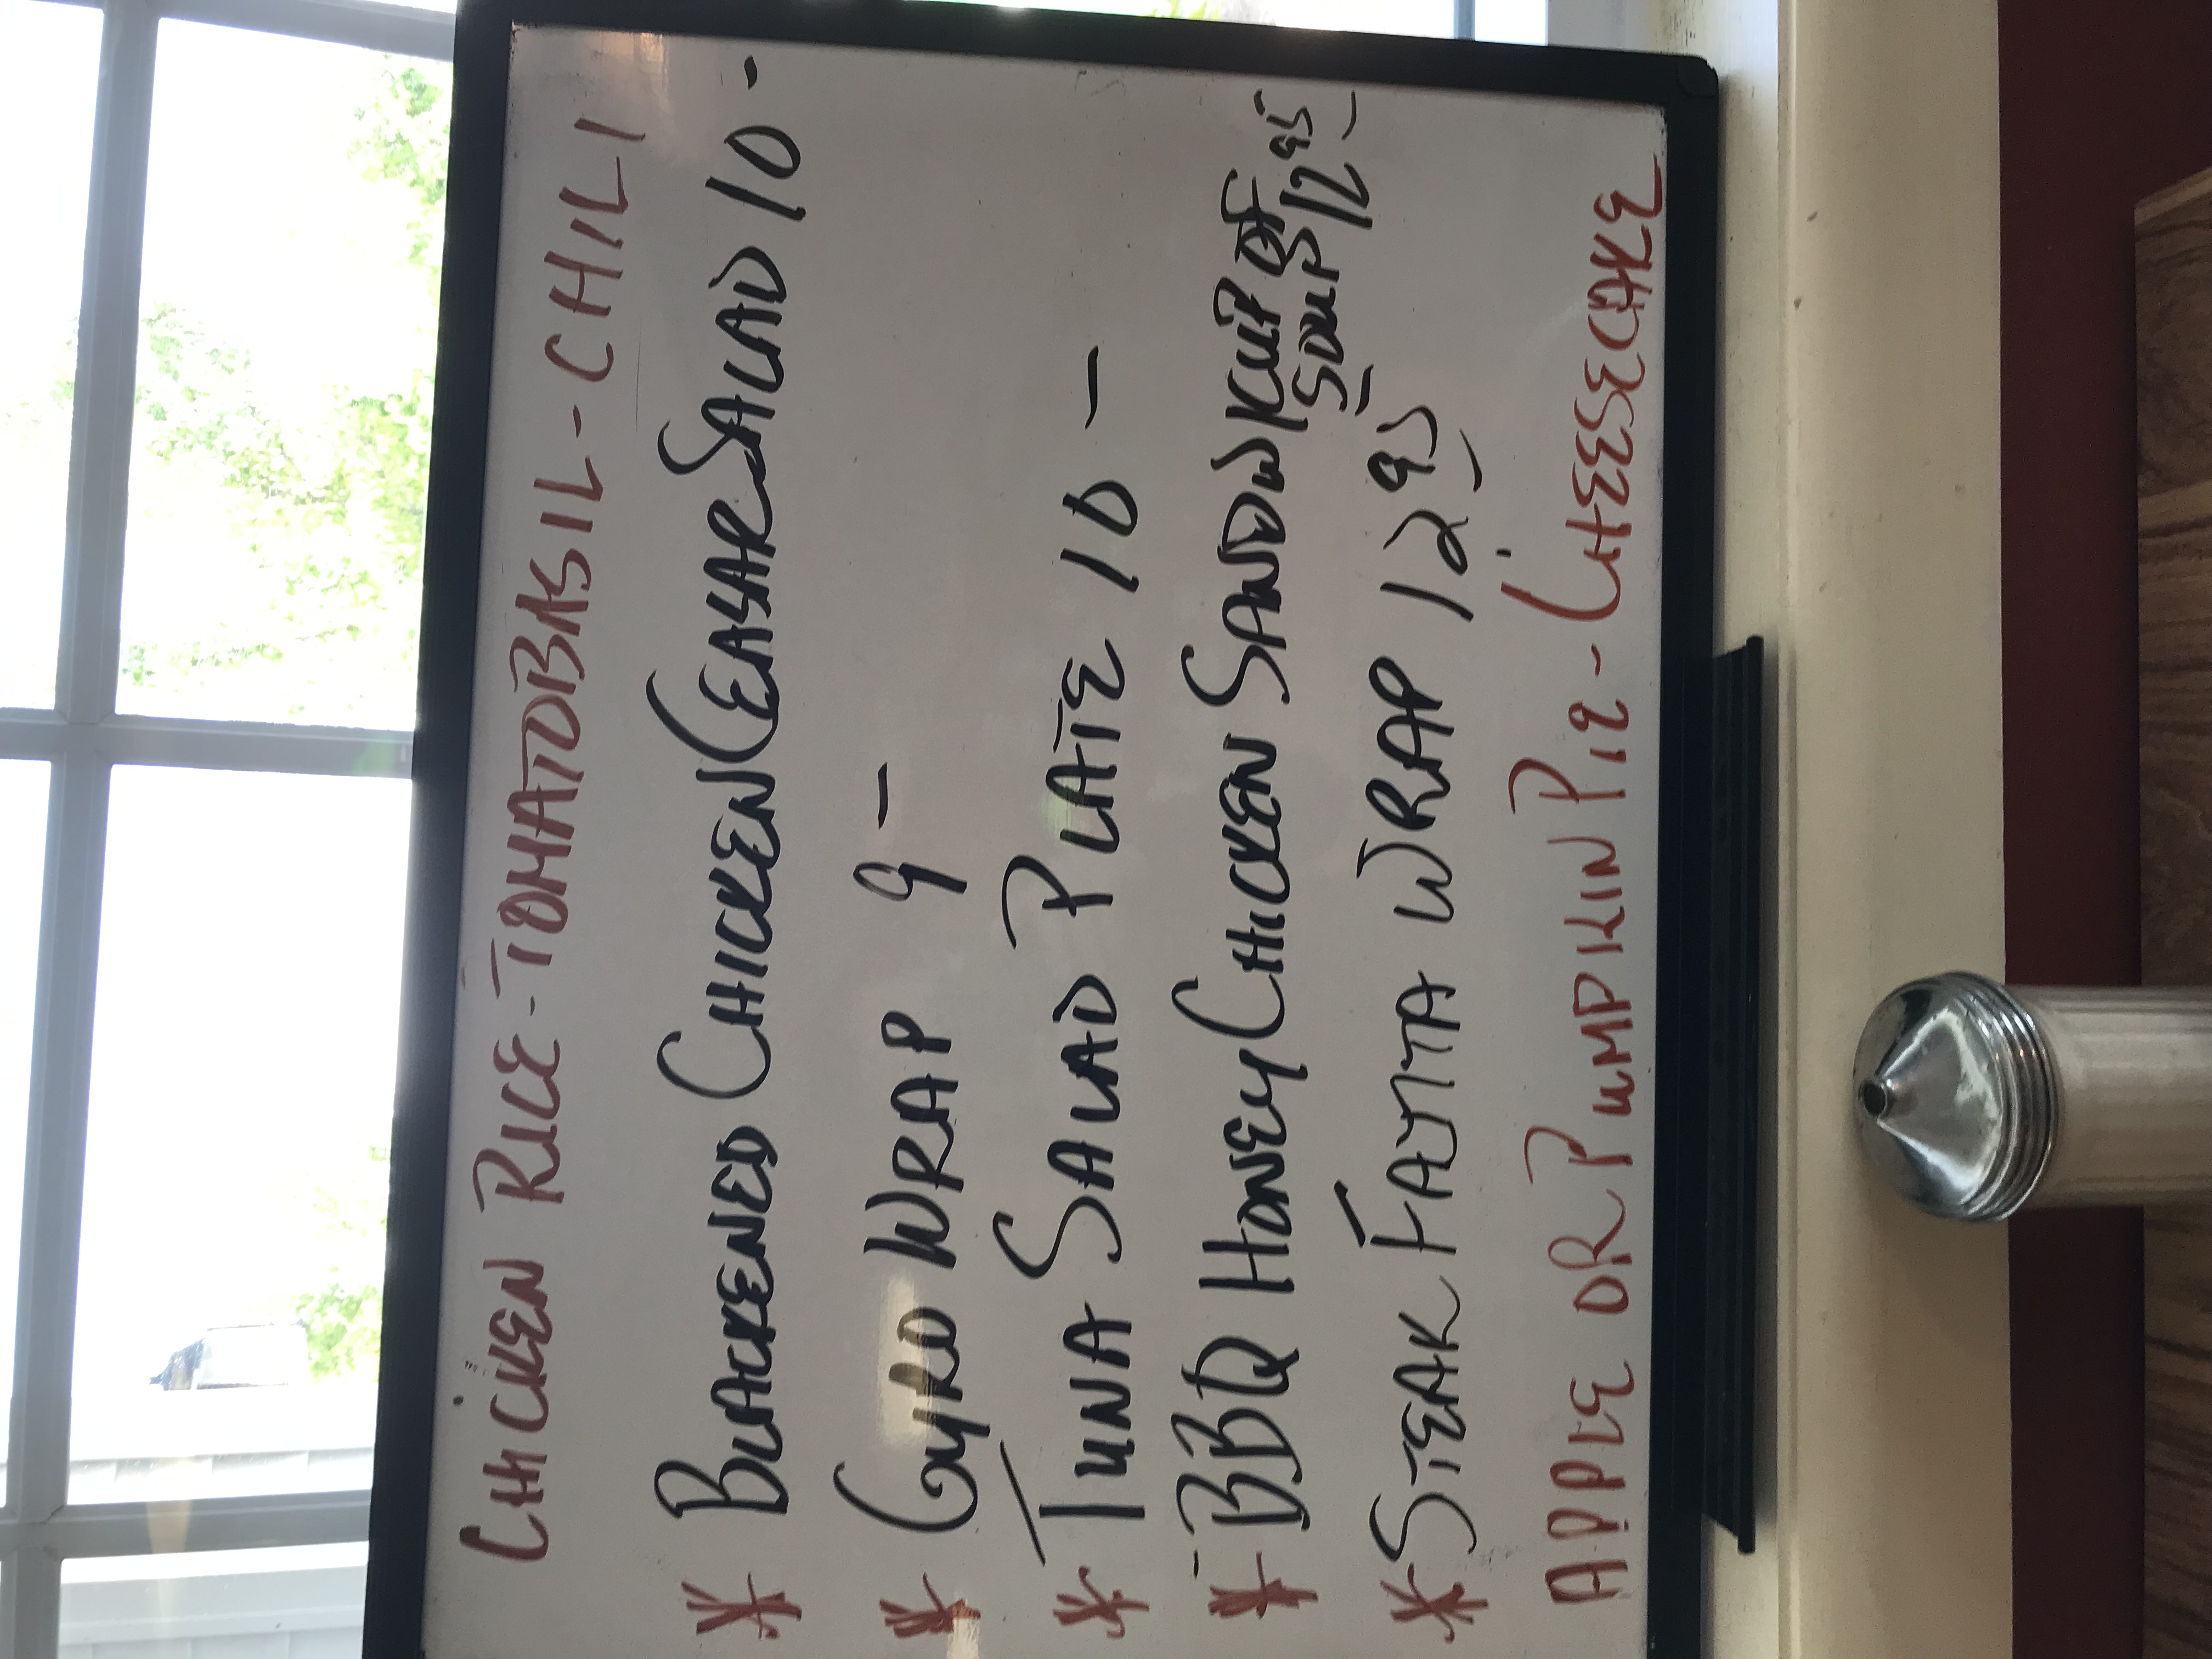 CHICKEN RICE - TOMATO BASIL - CHILI
* BLACKENED CHICKEN CEASAR SALAD 10 -
* GYRO WRAP 9 -
* TUNA SALAD PLATE 10 -
* BBQ HONEY CHICKEN SANDWICH
SOUP 12 95
* STEAK FAJITA WRAP 12 95
APPLE OR PUMPKIN PIE - CHEESECAKE